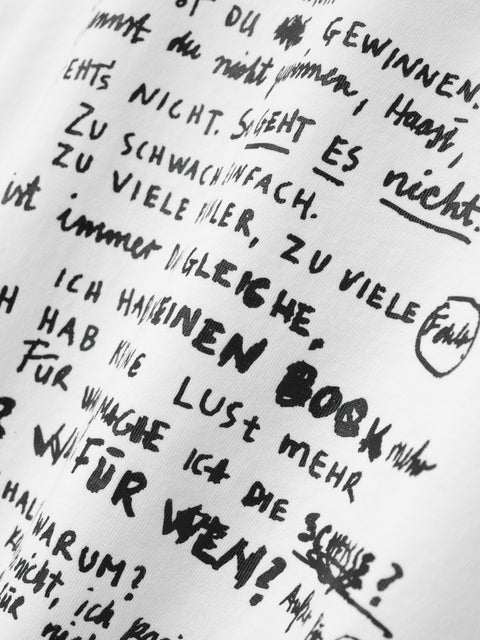 DU GEWINNEN.
du nicht gewinnen, Haasi,
EHT'S NICHT. SO GEHT ES nicht.
ZU SCHWACH EINFACH.
ZU VIELE FEHLER, ZU VIELE Fehler
ist immer GLEICHE,
ICH HAB KEINEN BOCK mehr
HAB KEINE LUST MEHR
FÜR MACHE ICH DIE SCHEISSE?
FÜR WEN?
WARUM?
nicht, ich